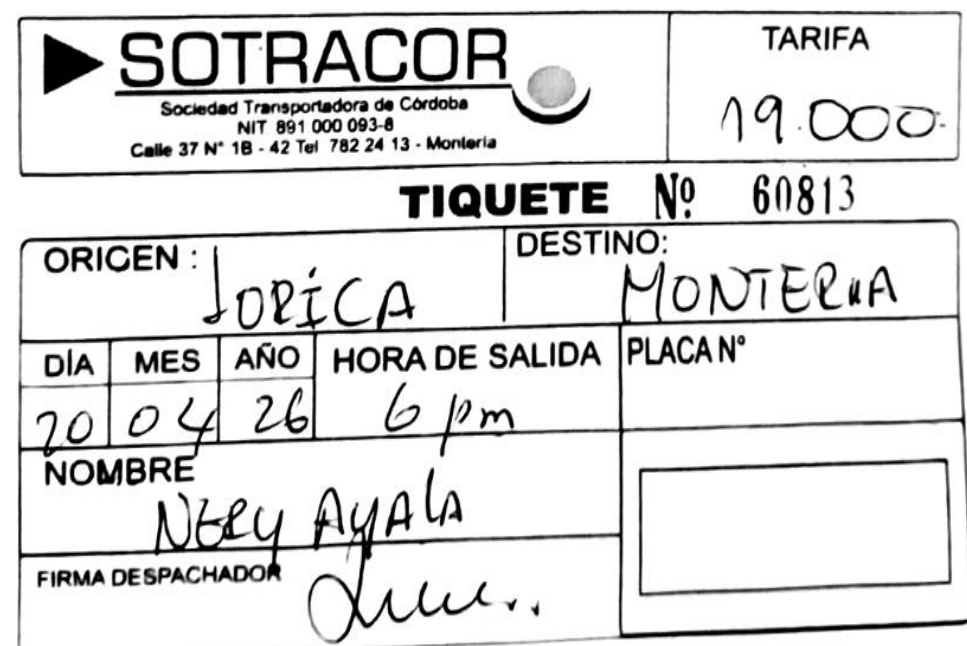 SOTRACOR
Sociedad Transportadora de Córdoba
NIT 891 000 093-8
Calle 37 N° 1B - 42 Tel 782 24 13 - Montería
TARIFA
19.000
TIQUETE Nº 60813
ORIGEN :
LORICA
DESTINO:
MONTERIA
DÍA MES AÑO HORA DE SALIDA PLACA N°
20 04 26 6 pm
NOMBRE
NERY AYALA
FIRMA DESPACHADOR